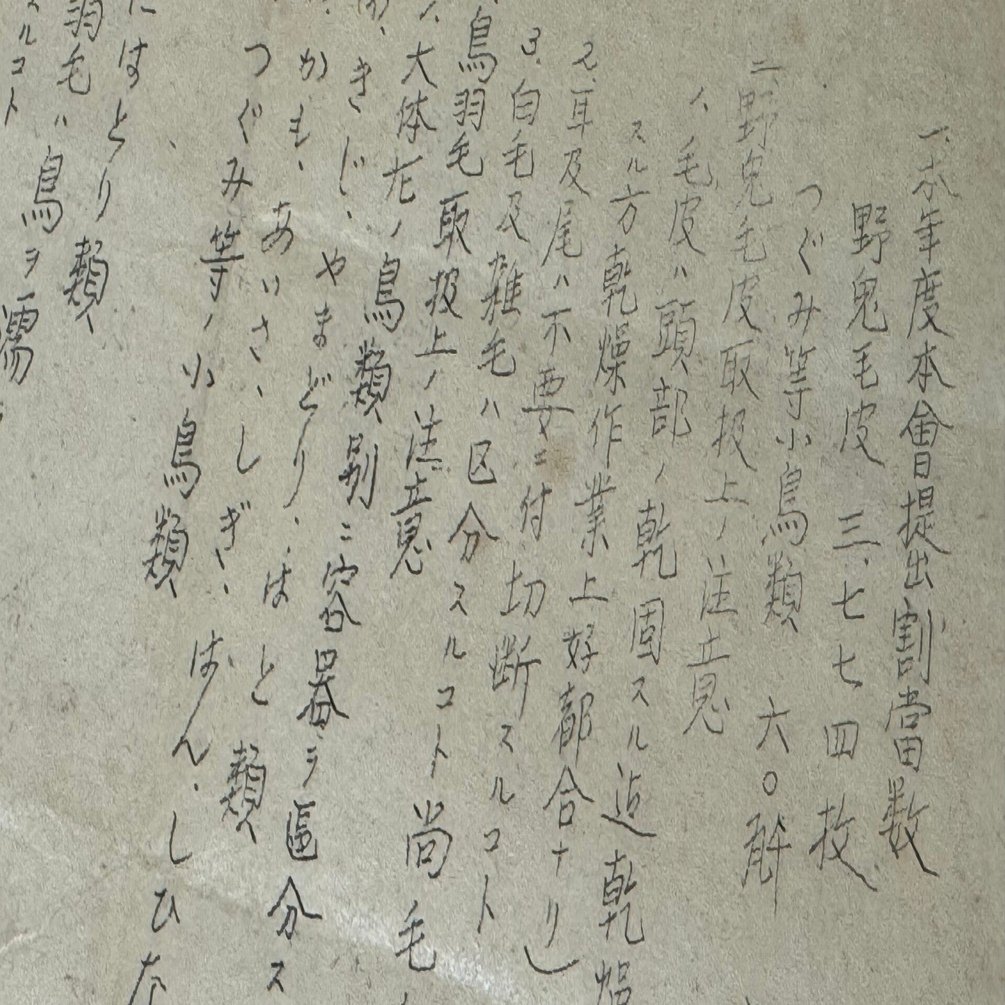 一、本年度本會提出割當数
野兎毛皮 三、七七四枚
つぐみ等小鳥類 六〇瓩
二、野兎毛皮取扱上ノ注意
ハ毛皮ハ頭部ノ乾固スル迠乾燥
スル方乾燥作業上好都合ナリ)
2、耳及尾ハ不要ニ付切断スルコト
3、白毛及雑毛ハ区分スルコト尚毛
鳥羽毛取扱上ノ注意
、大体左ノ鳥類別ニ容器ヲ區分ス
きじ、やまどり、はと類
かも、あいさ、しぎ、ばん、しひな
つぐみ等ノ小鳥類
にはとり類
羽毛ハ鳥ヲ濡
スルコト